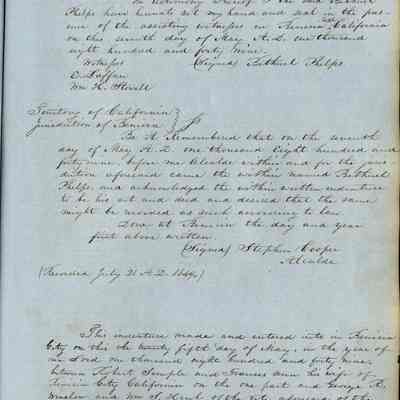 In testimony whereof I the said Bethuel
Phelps have hereunto set my hand and seal in the pres-
ence of the assisting witnesses in Benicia California
on this seventh day of May A.D. one thousand
eight hundred and forty nine.
Witness (Signed) Bethuel Phelps
Wm
Territory of California
jurisdiction of Benicia
Be it Remembered that on the seventh
day of May A.D. one thousand Eight hundred and
forty nine before me Alcalde within and for the juris-
diction aforesaid came the within named Bethuel
Phelps and acknowledged the within written indenture
to be his act and deed and desired that the same
might be recorded as such according to law
Done at Benicia the day and year
first above written
(Signed) Stephen Cooper
Alcalde
(Received July 21 A.D. 1849)
This indenture made and entered into in Benicia
City on this the twenty fifth day of May, in the year of
our Lord one thousand eight hundred and forty nine
between Robert Semple and Frances Ann his wife of
Benicia City California on the one part and George
and Wm of the city of the